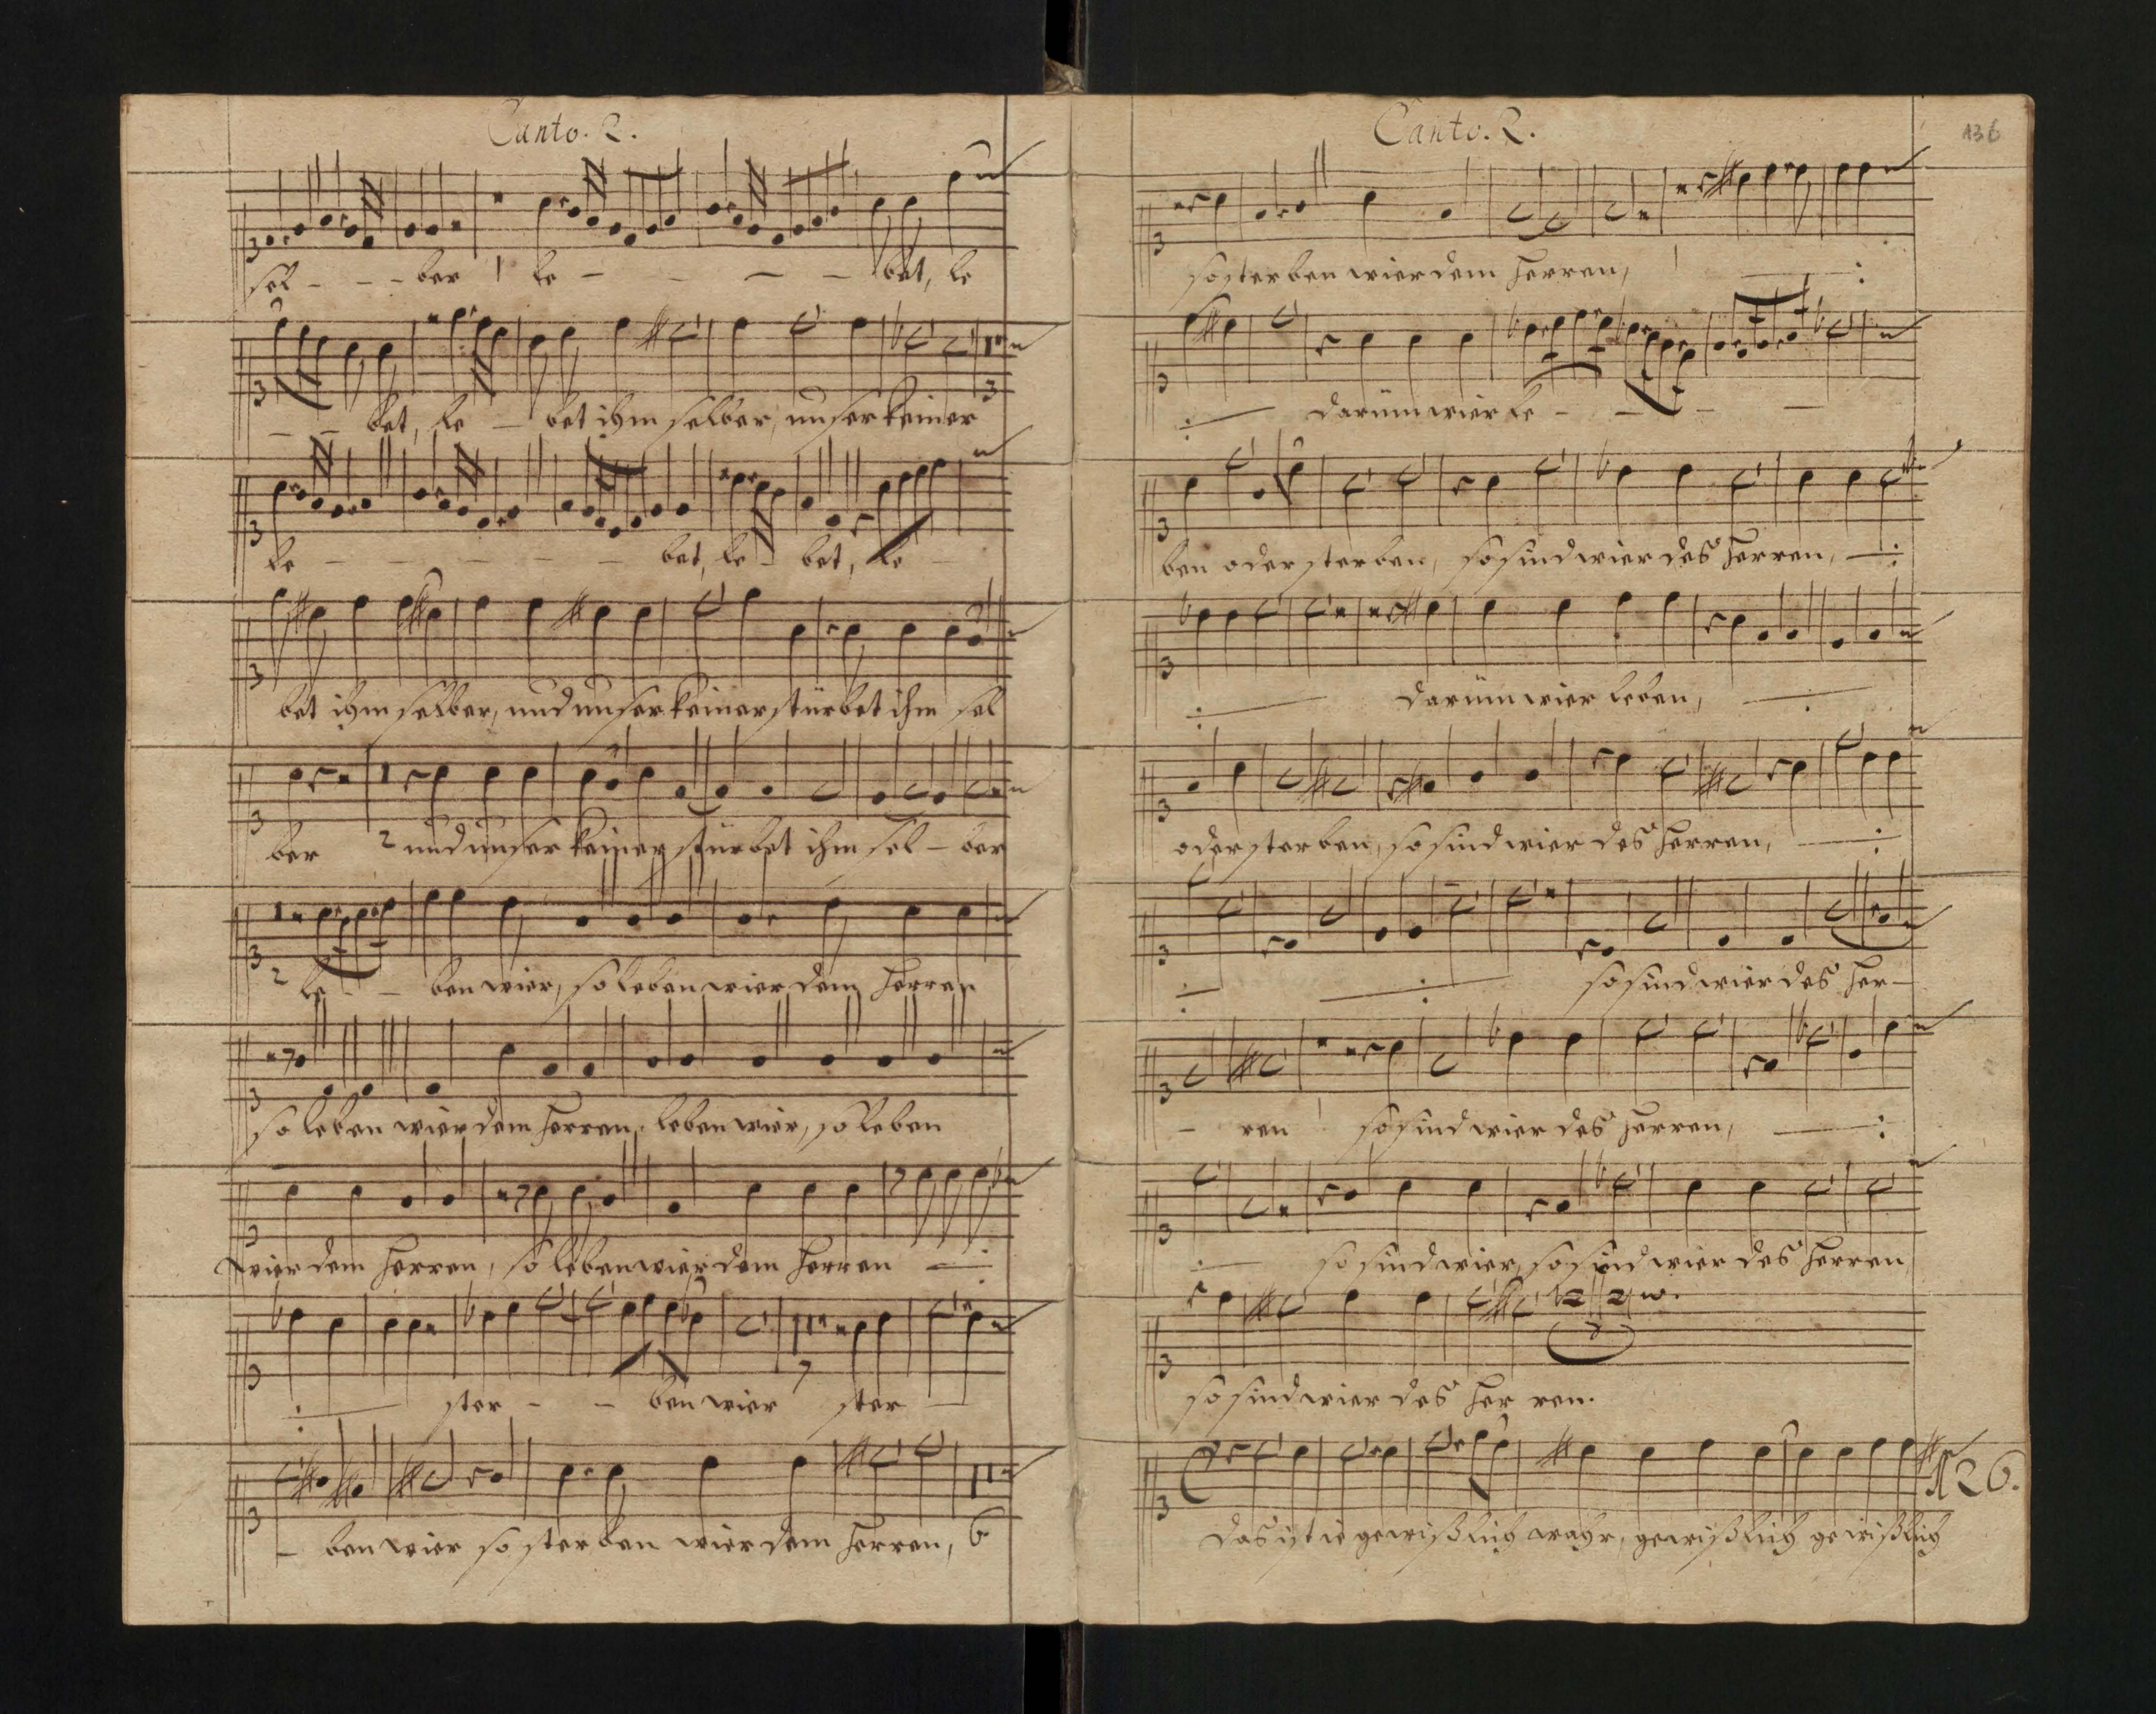 Canto. 2.
sel - - - ber le - - - - bet, le
- - bet, le - bet ihm selber, unser keiner
3
le - - - - - - bet, le - bet, le -
bet ihm selber, und unser keiner stürbet ihm sel
ber 2 und unser keiner stürbet ihm sel - ber
2 le - - ben wier, so leben wier dem Herren
so leben wier dem Herren, leben wier, so leben
wier dem Herren, so leben wier dem Herren
ster - - ben wier ster -
7
- ben wier so sterben wier dem Herren, 6
Canto. 2.
136
so sterben wier dem Herren,
darüm wier le - - - -
ben oder sterben, so sind wier des Herren,
darüm wier leben,
oder sterben, so sind wier des Herren,
so sind wier des Her-
- ren so sind wier des Herren,
so sind wier, so sind wier des Herren,
so sind wier des Her ren.
Das ist ie gewißlich wahr, gewißlich gewißlich
26.